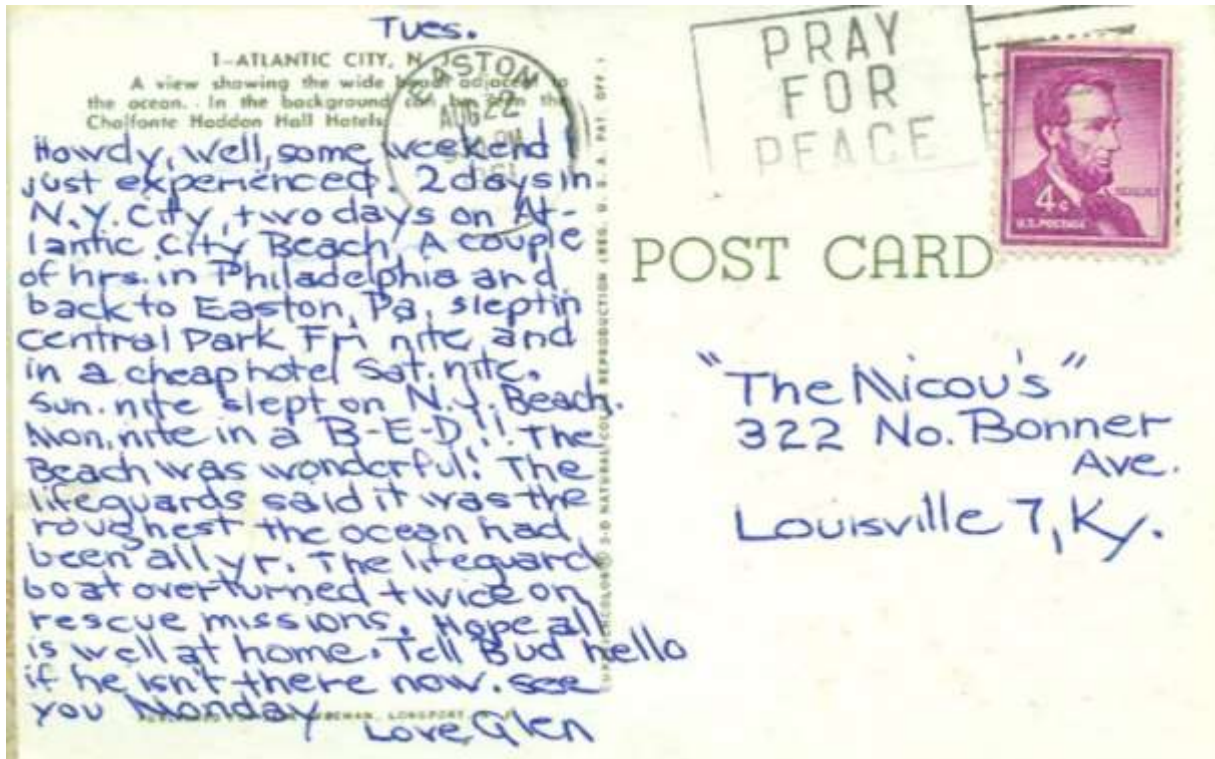 Tues.
1-ATLANTIC CITY, N. J.
A view showing the wide beach adjacent to
the ocean. In the background can be seen the
Chalfonte Haddon Hall Hotels
Howdy, well, some weekend I
just experienced. 2 days in
N.Y. City, two days on At-
lantic City Beach, A couple
of hrs. in Philadelphia and
back to Easton, Pa, slept in
Central Park Fri nite and
in a cheap hotel Sat. nite.
Sun. nite slept on N.J. Beach.
Mon. nite in a B-E-D!! The
Beach was wonderful! The
lifeguards said it was the
roughest the ocean had
been all yr. The lifeguard
boat overturned twice on
rescue missions. Hope all
is well at home. Tell Bud hello
if he isn't there now. see
you Monday
Love Glen
LONGPORT
REPRODUCTION (REG. U. S. A. PAT. OFF.)
AUG 22
PRAY
FOR
PEACE
4c
U.S. POSTAGE
POST CARD
"The Nicou's"
322 No. Bonner
Ave.
Louisville 7, Ky.